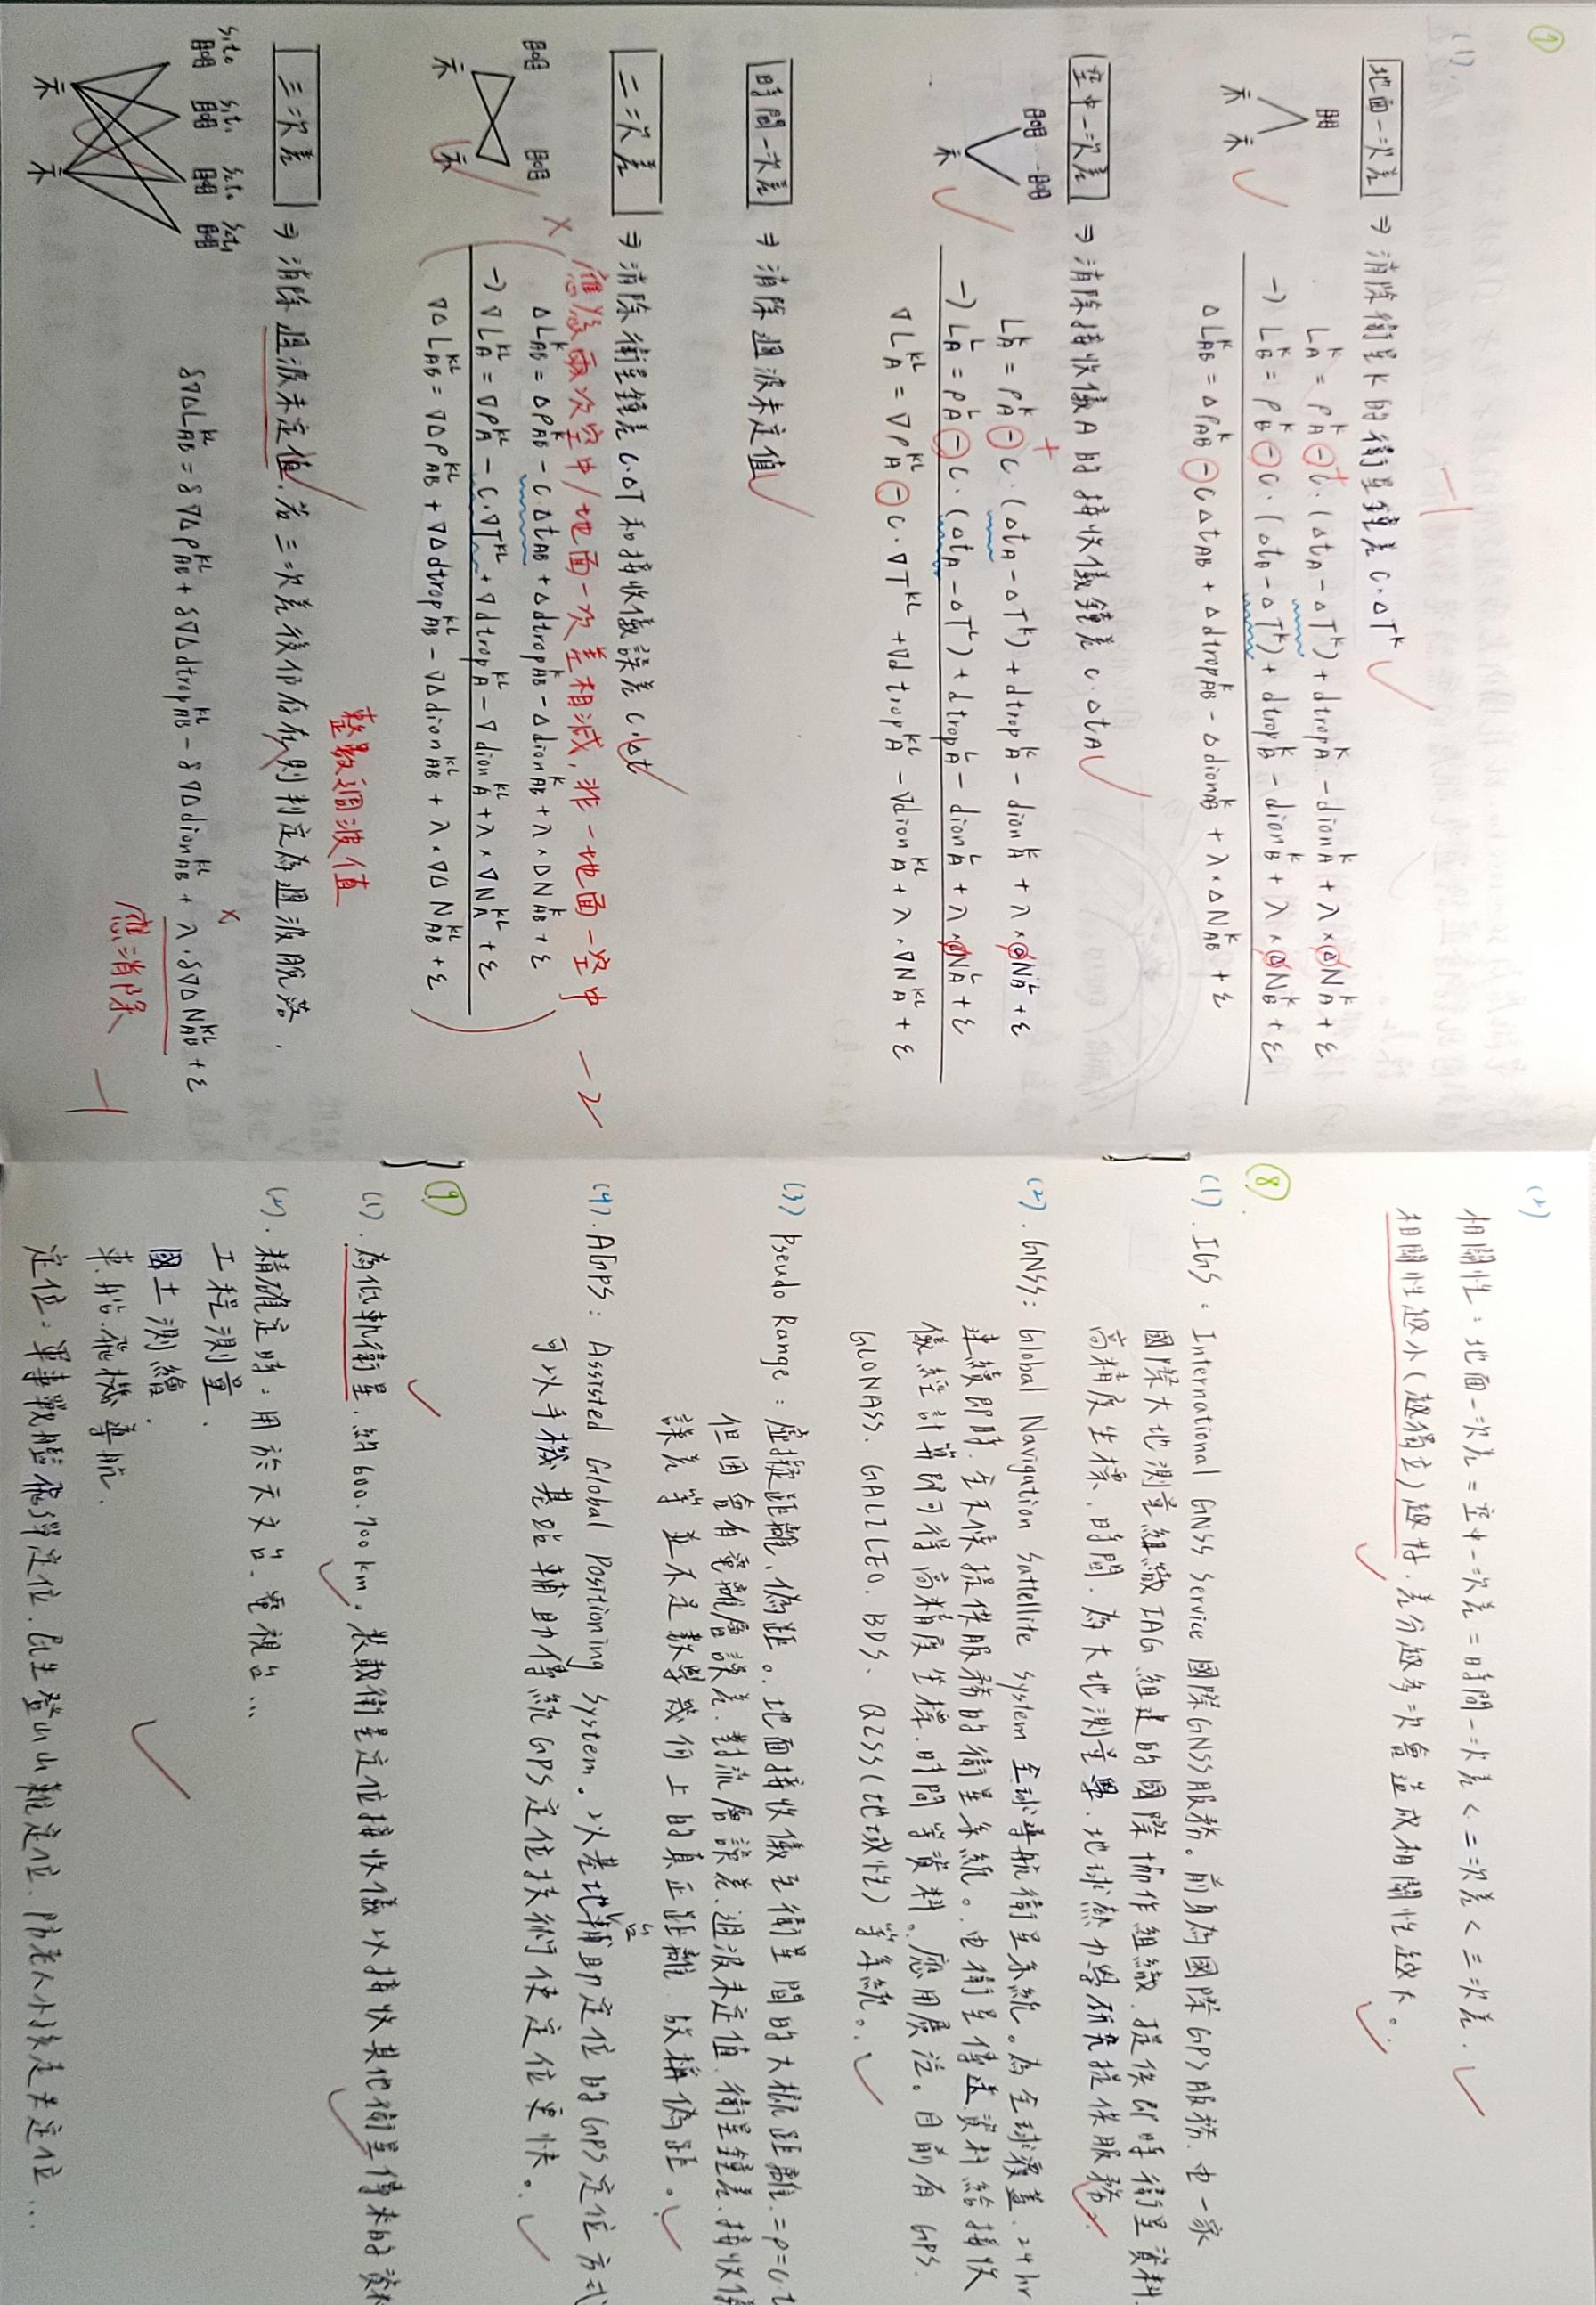 ⑦
(1).
-1
地面一次差 ⇒ 消除衛星K的衛星鐘差 C·ΔT^K
L_A^K = ρ_A^K - C·(Δt_A - ΔT^K) + dtrop_A^K - dion_A^K + λ×ΔN_A^K + ε
+
-) L_B^K = ρ_B^K - C·(Δt_B - ΔT^K) + dtrop_B^K - dion_B^K + λ×ΔN_B^K + ε
ΔL_AB^K = Δρ_AB^K - CΔt_AB + Δdtrop_AB^K - Δdion_AB^K + λ×ΔN_AB^K + ε
空中一次差 ⇒ 消除接收儀A的接收儀鐘差 C·Δt_A
+
L_A^K = ρ_A^K - C·(Δt_A - ΔT^K) + dtrop_A^K - dion_A^K + λ×N_A^L + ε
-) L_A^L = ρ_A^L - C·(Δt_A - ΔT^L) + dtrop_A^L - dion_A^L + λ×N_A^L + ε
∇L_A^KL = ∇ρ_A^KL - C·∇T^KL + ∇dtrop_A^KL - ∇dion_A^KL + λ×∇N_A^KL + ε
時間一次差 ⇒ 消除週波未定值
二次差 ⇒ 消除衛星鐘差 C·ΔT 和接收儀誤差 C·Δt
應為兩次空中/地面一次差相減,非一地面一空中 -2
ΔL_AB^K = Δρ_AB^K - C·Δt_AB + Δdtrop_AB^K - Δdion_AB^K + λ×ΔN_AB^K + ε
-) ∇L_A^KL = ∇ρ_A^KL - C·∇T^KL + ∇dtrop_A^KL - ∇dion_A^KL + λ×∇N_A^KL + ε
∇ΔL_AB^KL = ∇Δρ_AB^KL + ∇Δdtrop_AB^KL - ∇Δdion_AB^KL + λ×∇ΔN_AB^KL + ε
整數週波值
三次差 ⇒ 消除週波未定值.若三次差後仍存在則判定為週波脫落.
S₁t₀ S₁t₁ S₂t₀ S₂t₁
δ∇ΔL_AB^KL = δ∇Δρ_AB^KL + δ∇Δdtrop_AB^KL - δ∇Δdion_AB^KL + λ·δ∇ΔN_AB^KL + ε
應消除
-1
(2)
相關性:地面一次差=空中一次差=時間一次差<二次差<三次差.
相關性越小(越獨立)越好.差分越多次會造成相關性越大。
⑧
(1). IGS: International GNSS Service 國際GNSS服務。前身為國際GPS服務.由一家
國際大地測量組織IAG組建的國際協作組織.提供即時衛星資料.
高精度坐標.時間.為大地測量學.地球熱力學研究提供服務。
(2). GNSS: Global Navigation Sattellite System 全球導航衛星系統。為全球覆蓋.24hr
連續即時.全天候提供服務的衛星系統。由衛星傳送資料給接收
儀經計算即可得高精度坐標.時間等資料。應用廣泛。目前有 GPS.
GLONASS. GALILEO. BDS. QZSS(地域性)等系統。
(3) Pseudo Range: 虛擬距離、偽距。地面接收儀至衛星間的大概距離.=ρ=c·t
但因會有電離層誤差.對流層誤差.週波未定值.衛星鐘差.接收儀
誤差等並不是數學幾何上的真正距離 故稱偽距。
台
(4). AGPS: Assisted Global Positioning System。以基地輔助定位的GPS定位方式
可以手機基站輔助傳統GPS定位技術使定位更快。
⑨
(1). 為低軌衛星.約600.700 km。裝載衛星定位接收儀以接收其他衛星傳來的資料
(2). 精確定時:用於天文台.電視台...
工程測量.
國土測繪.
車.船.飛機導航.
定位:軍事戰艦飛彈定位.民生登山山難定位.防老人小孩走失定位...